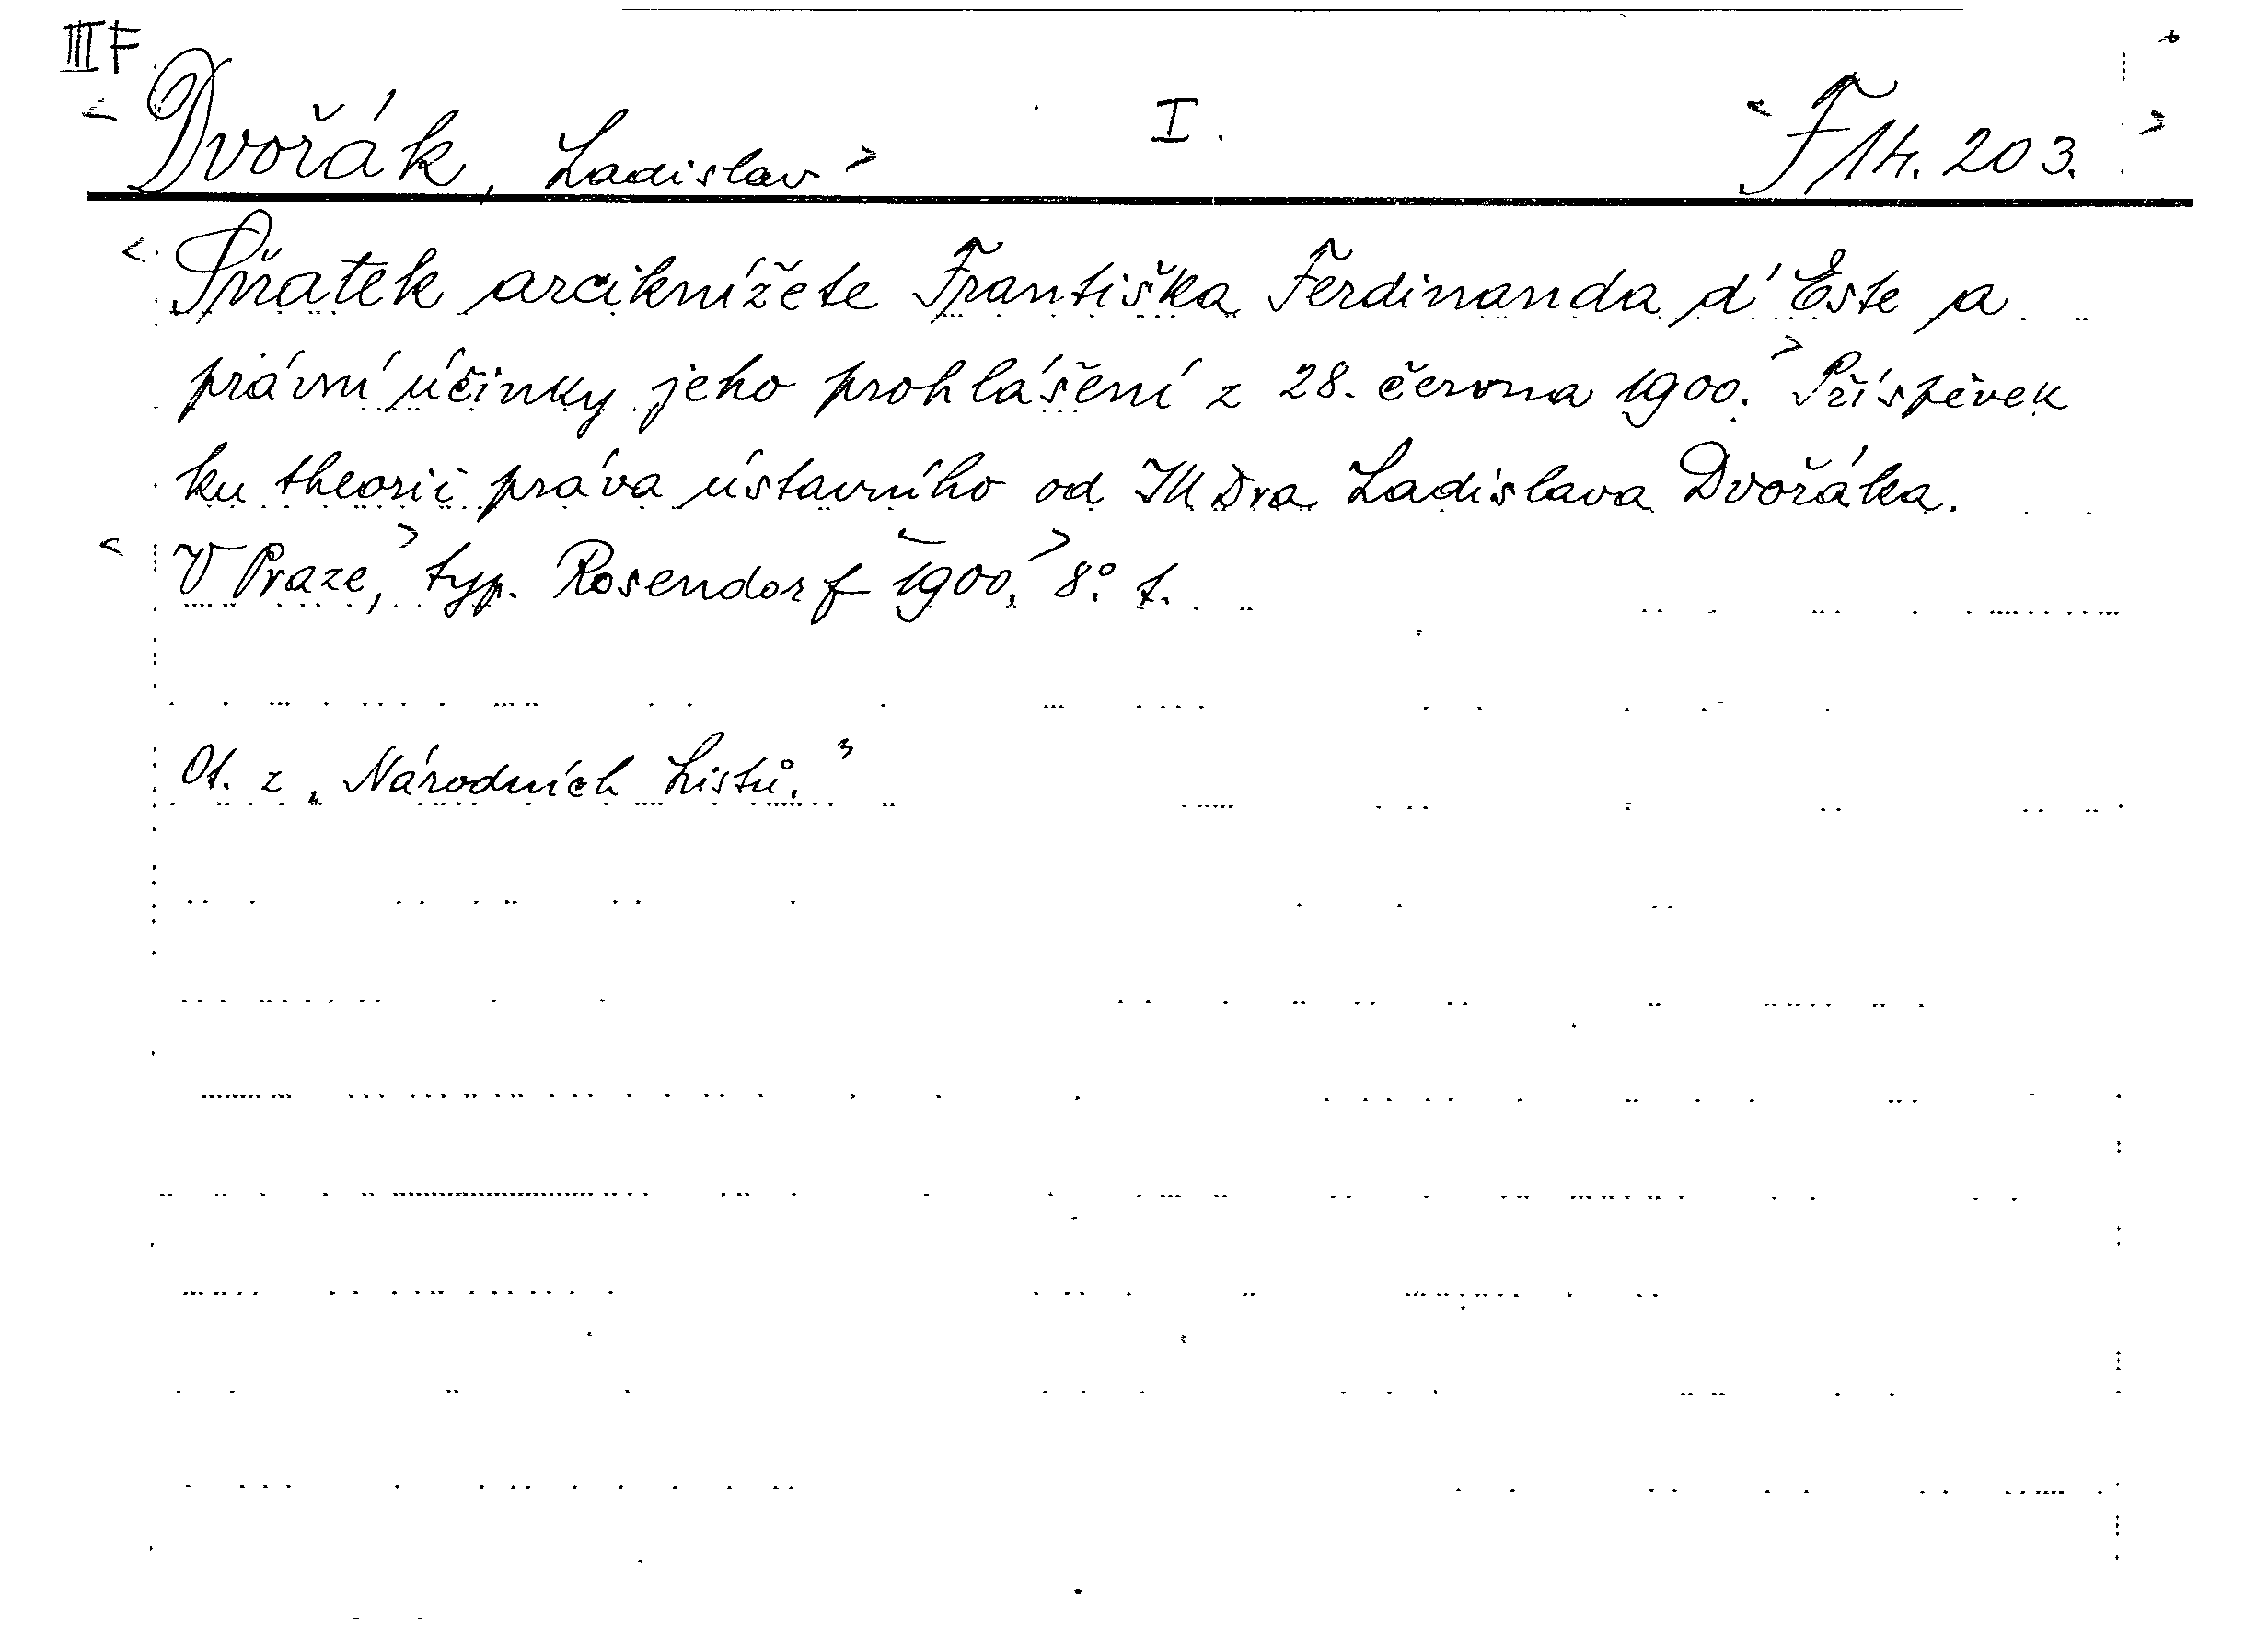 III F
<Dvořák, Ladislav> I. <F 14.203.>
<Sňatek arciknížete Františka Ferdinanda d'Este a
právní účinky jeho prohlášení z 28. června 1900.> Příspěvek
ku theorii práva ústavního od JUDra Ladislava Dvořáka.
<V Praze,> typ. Rosendorf <1900.> 8° t.
Ot. z „Národních Listů."